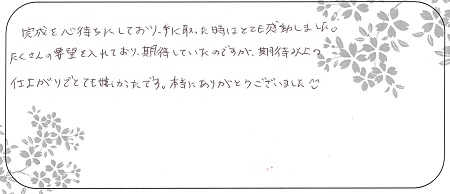 完成を心待ちにしており、手に取った時はとても感動しました。
たくさんの要望を入れており、期待していたのですが、期待以上の
仕上がりでとても嬉しかったです。本当にありがとうございました☺